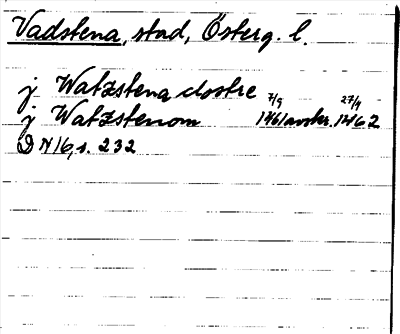 Vadstena, stad, Österg. l.
j Watzstena clostre
j Watzstenom 7/9 1461 avskr. 27/9 1462
DN 16, s. 232